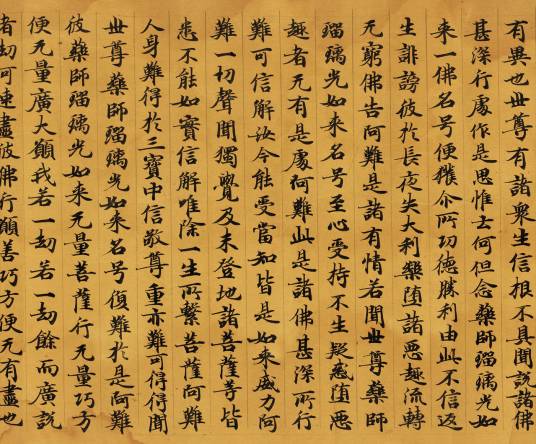 有異也世尊有諸衆生信根不具聞說諸佛
甚深行處作是思惟云何但念藥師瑠璃光如
来一佛名号便獲尒所功德勝利由此不信返
生誹謗彼於長夜失大利樂墮諸惡趣流轉
无窮佛告阿難是諸有情若聞世尊藥師
瑠璃光如来名号至心受持不生疑惑墮惡
趣者无有是處阿難此是諸佛甚深所行
難可信解汝今能受當知皆是如来威力阿
難一切聲聞獨覺及未登地諸菩薩等皆
悉不能如實信解唯除一生所繫菩薩阿難
人身難得於三寶中信敬尊重亦難可得得聞
世尊藥師瑠璃光如来名号復難於是阿難
彼藥師瑠璃光如来无量菩薩行无量巧方
便无量廣大願我若一劫若一劫餘而廣說
者劫可速盡彼佛行願善巧方便无有盡也